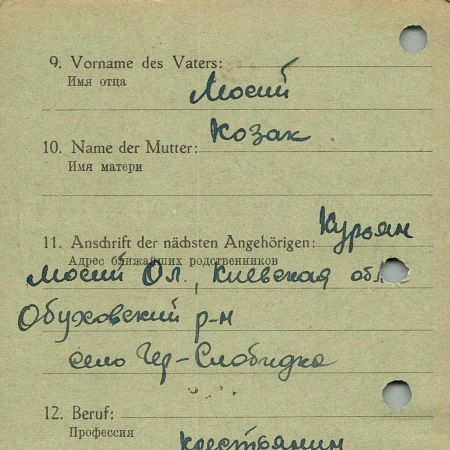 9. Vorname des Vaters:
Имя отца
Мосий
Козак
10. Name der Mutter:
Имя матери
Курьян
11. Anschrift der nächsten Angehörigen:
Адрес ближайших родственников
Мосий Ол., Киевская обл
Обуховский р-н
село Гер-Слобидка
12. Beruf:
Профессия
крестьянин